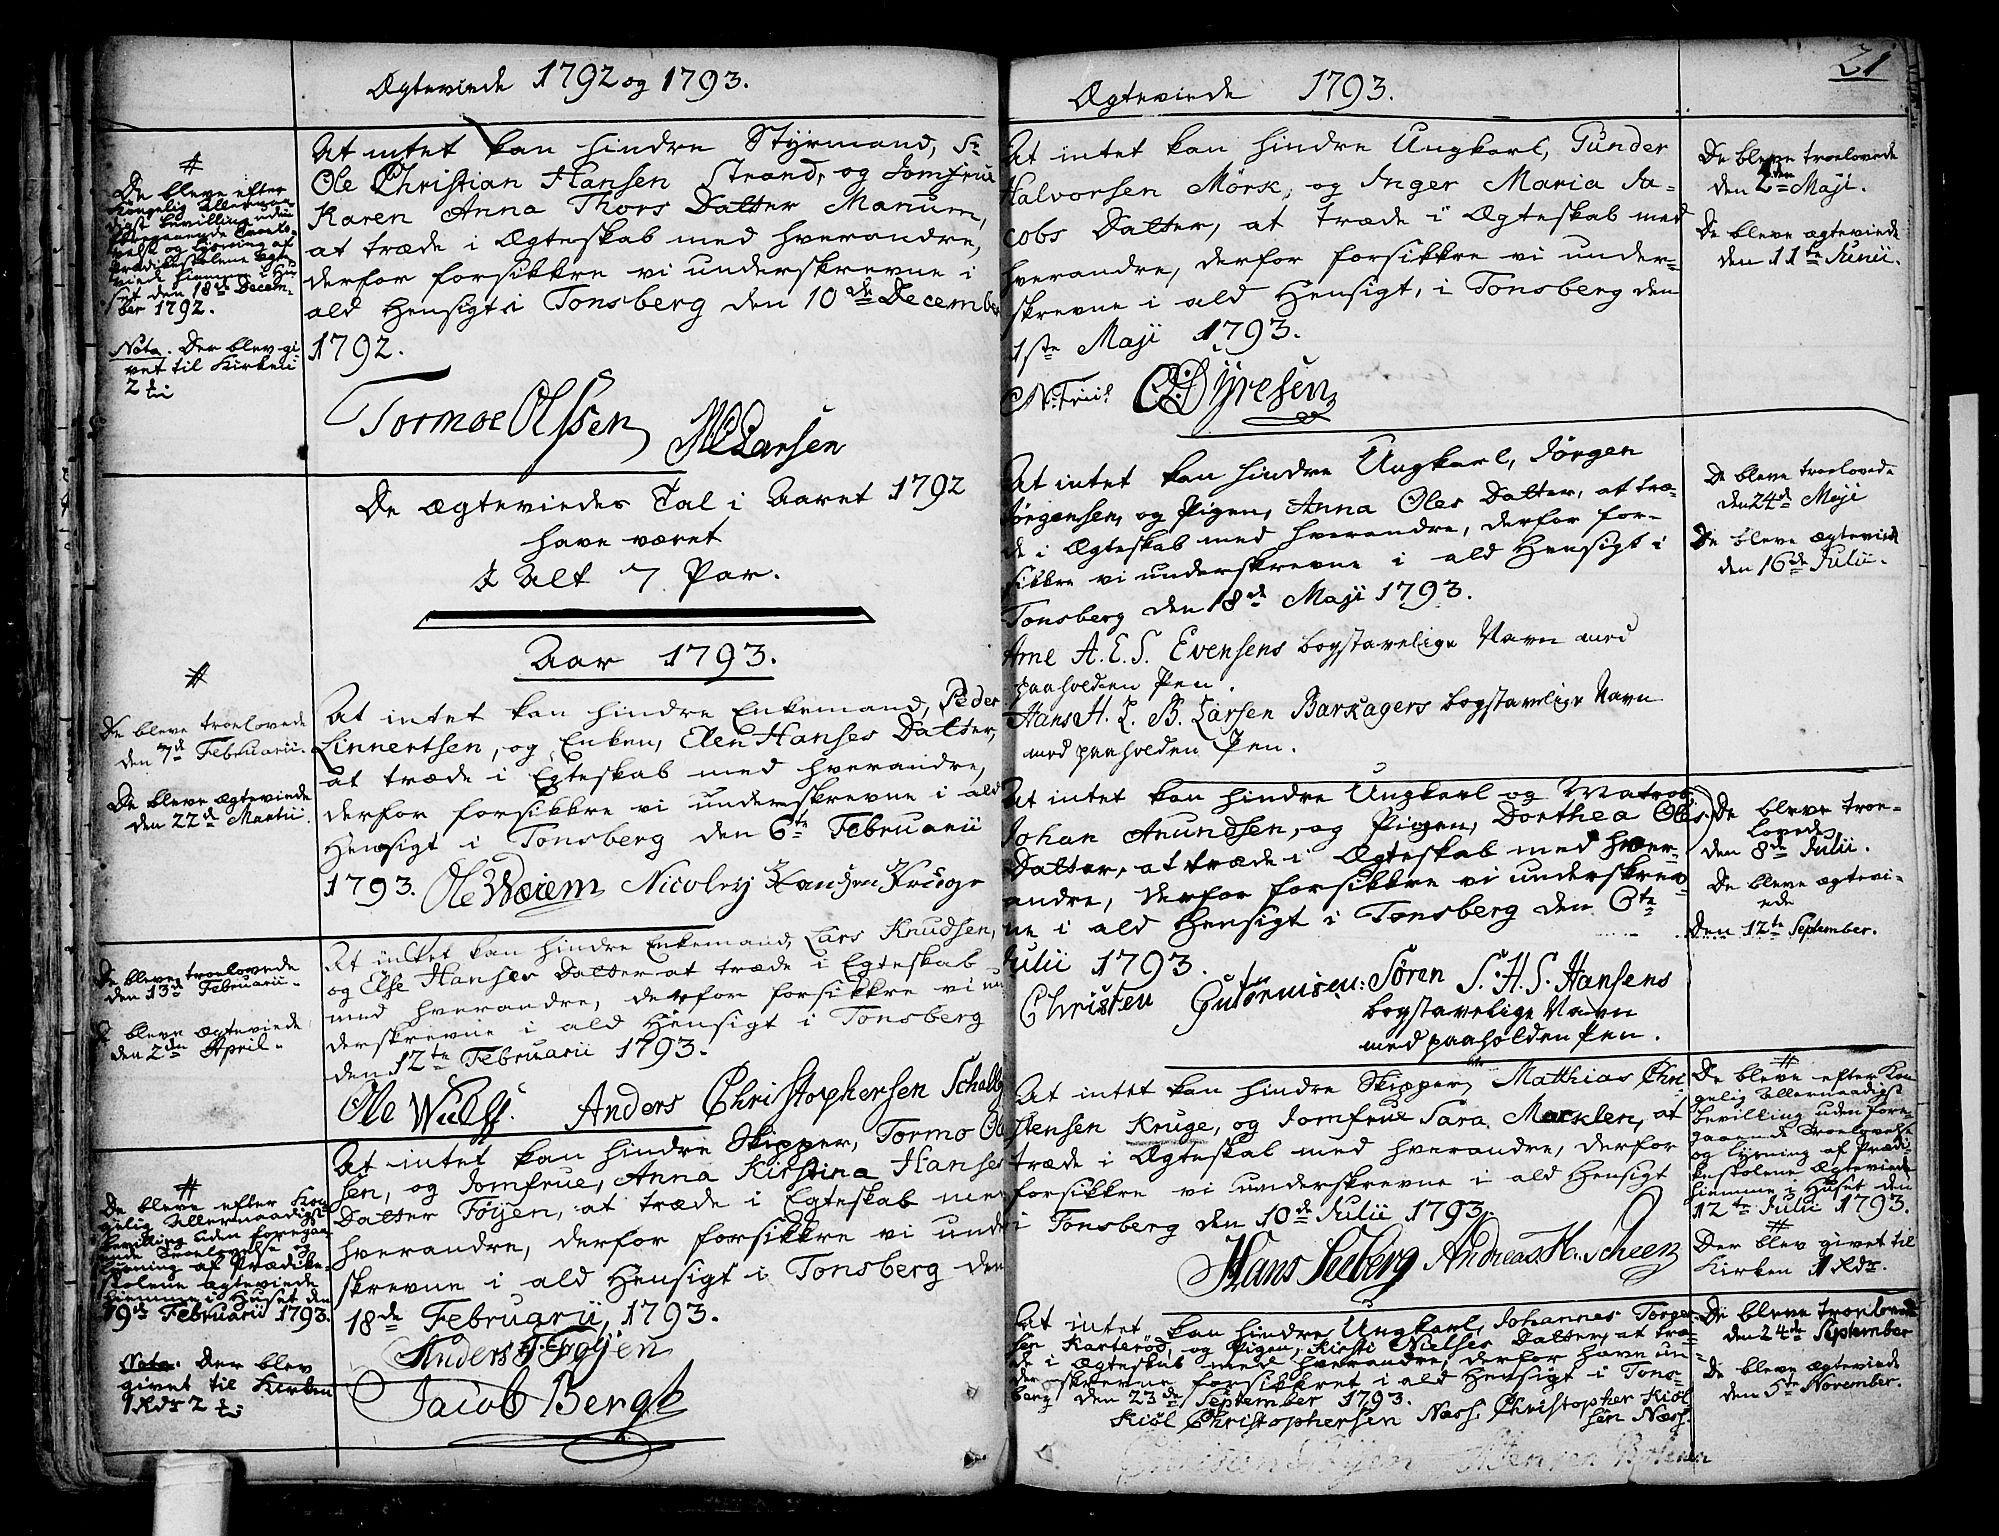 Ægteviede 1792 og 1793.
#
De bleve efter
Kongelig Allernaa-
digst Bevilling uden
foregaaende Troelo-
velse og Lysning af
Prædikestolene Ægte-
viede hiemme i Hu-
set den 18de Decem-
ber 1792.
Nota. Der blev gi-
vet til Kirken
2
At intet kan hindre Styrmand, Sr
Ole Christian Hansen Strand, og Jomfrue
Karen Anna Thors Datter Manum,
at træde i Ægteskab med hverandre,
derfor forsikkre vi underskrevne i
ald Hensigt i Tonsberg den 10de December
1792.
Tormoe Olssen MCLarsen
De Ægteviedes Tal i Aaret 1792
have været
I Alt 7 Par.
Aar 1793.
#
De bleve troelovede
den 7de Februarii.
De bleve ægteviede
den 22de Martii.
At intet kan hindre Enkemand, Peder
Linnertsen, og Enken, Elen Hanses Datter,
at træde i Egteskab med hverandre,
derfor forsikkre vi underskrevne i ald
Hensigt i Tonsberg den 6te Februarii
1793. Ole Weiem Nicoley Hansen Kruge
De bleve troelovede
den 13de Februarii.
De bleve ægteviede
den 2den April.
At intet kan hindre Enkemand, Lars Knudsen,
og Else Hanses Datter at træde i Egteskab
med hverandre, derfor forsikkre vi un-
derskrevne i ald Hensigt i Tonsberg
den 12te Februarii 1793.
Ole Wulff. Anders Christophersen
#
De bleve efter Kon-
gelig Allernaadigst
Bevilling uden foregaa-
ende Troelovelse og
Lysning af Prædike-
stolene Ægteviede
hiemme i Huset den
19de Februarii 1793.
Nota. Der blev
givet til Kirken
1 Rdr 2
At intet kan hindre Skipper, Tormo Ol-
sen, og Jomfrue, Anna Kirstina Hanses
Datter Föijen, at træde i Egteskab med
hverandre, derfor forsikkre vi under-
skrevne i ald Hensigt i Tonsberg den
18de Februarii, 1793.
Anders F. Föijen
Jacob Bergh
21
Ægteviede 1793.
At intet kan hindre Ungkarl, Gunder
Halvorsen Mörk, og Inger Maria Ja-
cobs Datter, at træde i Ægteskab med
hverandre, derfor forsikkre vi under-
skrevne i ald Hensigt, i Tonsberg den
1ste Maji 1793.
N. Friis CDyresen
De bleve troelovede
den 2den Maji.
De bleve ægteviede
den 11te Junii.
At intet kan hindre Ungkarl, Jörgen
Jörgensen, og Pigen, Anna Oles Datter, at træ-
de i Ægteskab med hverandre, derfor for-
sikkre vi underskrevne i ald Hensigt i
Tonsberg den 18de Maji 1793.
Arne A. E. S. Evensens bogstavelige Navn med
paaholden Pen.
Hans H. L. B. Larsen Barkagers bogstavelige Navn
med paaholden Pen.
De bleve troelovede
den 24de Maji
De bleve ægteviede
den 16de Julii.
At intet kan hindre Ungkarl og Matros
Johan Anundsen, og Pigen, Dorthea Oles
Datter, at træde i Ægteskab med hver-
andre, derfor forsikkre vi underskrev-
ne i ald Hensigt i Tonsberg den 6te
Julii 1793.
Christen Gutormsen: Sören S. H. S. Hansens
bogstavelige Navn
med paaholden Pen.
De bleve troe-
lovede
den 8de Julii.
De bleve ægtevi-
ede
den 12te September.
At intet kan hindre Skipper, Matthias Chri-
stensen Kruge, og Jomfrue Sara Marklen, at
træde i Ægteskab med hverandre, derfor
forsikkre vi underskrevne i ald Hensigt
i Tonsberg den 10de Julii 1793.
Hans Seeberg Andreas H. Scheen
#
De bleve efter Kon-
gelig Allernaadigst
Bevilling uden fore-
gaaende Troelovelse
og Lysning af Prædi-
kestolene Ægteviede
hiemme i Huset den
12te Julii 1793.
#
Der blev givet til
Kirken 1 Rdr.
At intet kan hindre Ungkarl, Johannes Torger-
sen Karteröd, og Pigen, Kirsti Nielses Datter, at træ-
de i Ægteskab med hverandre, derfor have un-
derskrevne forsikkret i ald Hensigt i Tons-
berg den 23de September 1793.
Kiöl Christophersen Næss. Christopher Kiöl
sen Næss.
De bleve troelovede
den 24de September
De bleve ægteviede
den 5te November.